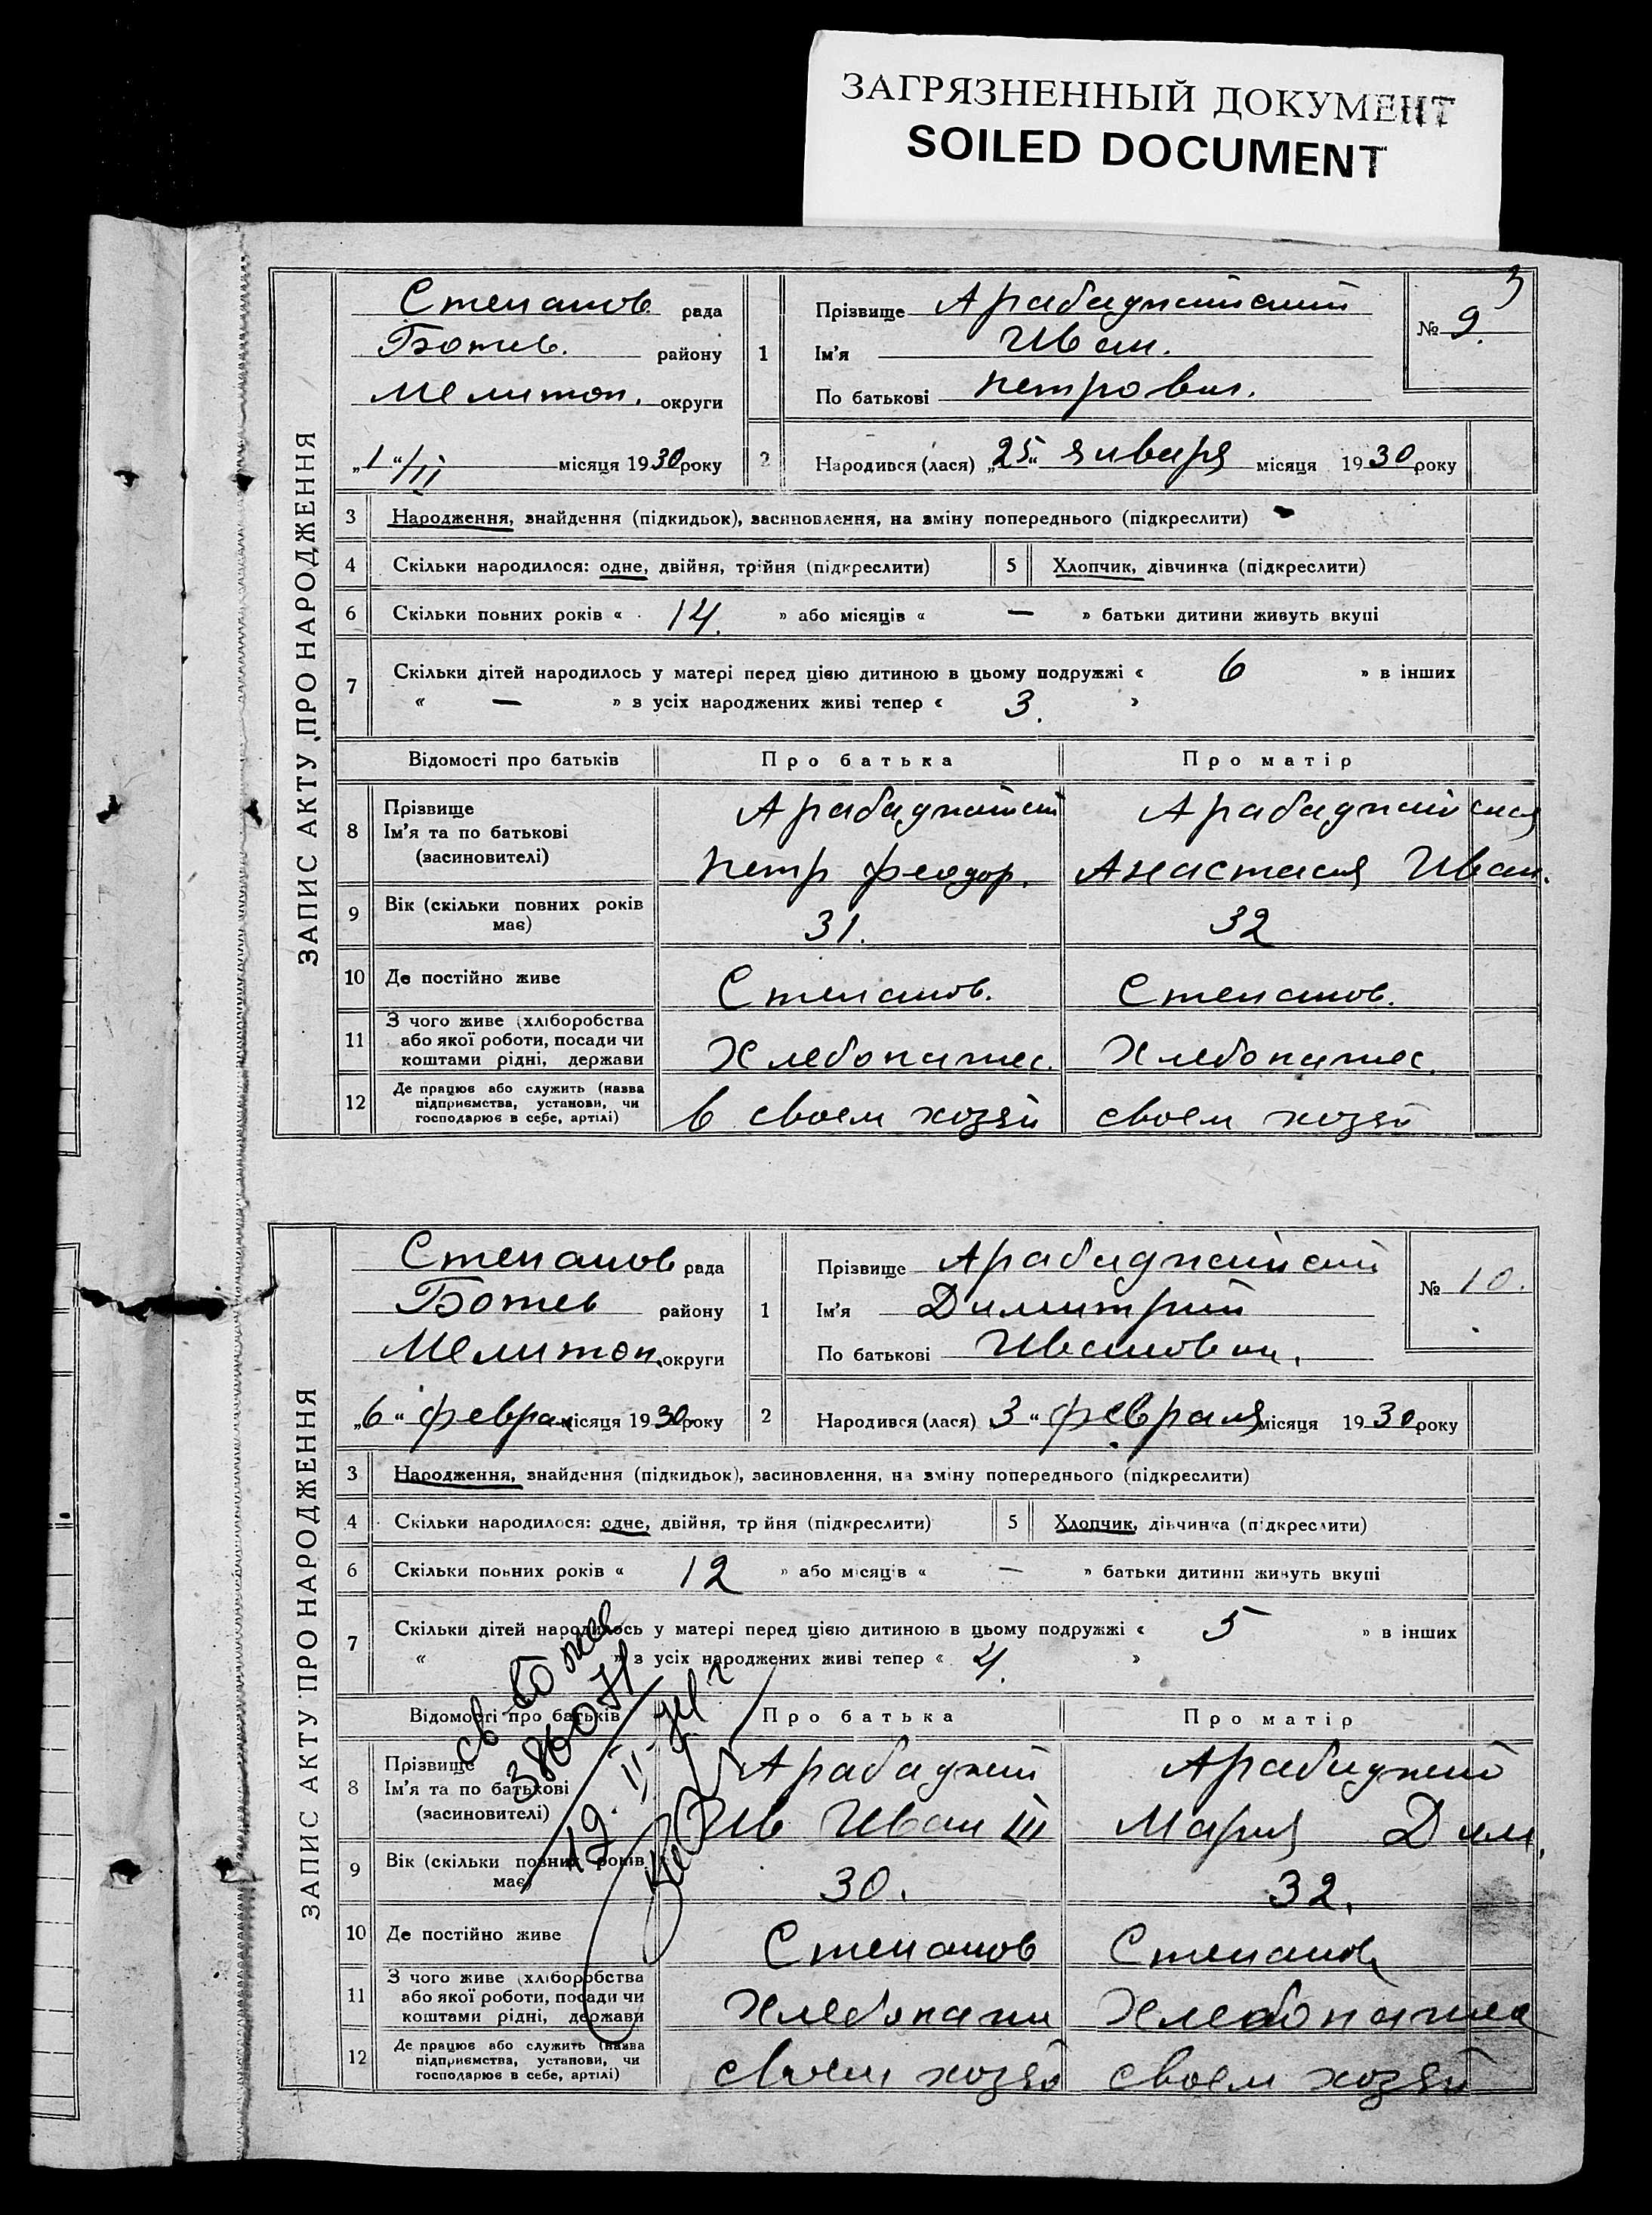 ЗАГРЯЗНЕННЫЙ ДОКУМЕНТ
SOILED DOCUMENT
3
ЗАПИС АКТУ ПРО НАРОДЖЕННЯ
Степанов. рада
Ботев. району
Мелитоп. округи
„1“/II місяця 1930 року
1 Прізвище Арабаджийский
Ім'я Иван.
По батькові Петрович.
№ 9.
2 Народився (лася) „25“ января місяця 1930 року
3 Народження, знайдення (підкидьок), засиновлення, на зміну попереднього (підкреслити)
4 Скільки народилося: одне, двійня, трійня (підкреслити) 5 Хлопчик, дівчинка (підкреслити)
6 Скільки повних років « 14. » або місяців « — » батьки дитини живуть вкупі
7 Скільки дітей народилось у матері перед цією дитиною в цьому подружжі « 6 » в інших
« — » з усіх народжених живі тепер « 3. »
Відомості про батьків Про батька Про матір
8 Прізвище Арабаджийский Арабаджийская
Ім'я та по батькові
(засиновителі) Петр Феодор. Анастасия Иван.
9 Вік (скільки повних років
має) 31. 32
10 Де постійно живе Степанов. Степанов.
11 З чого живе (хліборобства
або якої роботи, посади чи
коштами рідні, держави Хлебопашес. Хлебопашес.
12 Де працює або служить (назва
підприємства, установи, чи
господарює в себе, артілі) в своем хозяй своем хозяй
ЗАПИС АКТУ ПРО НАРОДЖЕННЯ
Степанов рада
Ботев району
Мелитоп. округи
„6“ февра місяця 1930 року
1 Прізвище Арабаджийский
Ім'я Димитрий
По батькові Иванович.
№ 10.
2 Народився (лася) 3 “ февраля місяця 1930 року
3 Народження, знайдення (підкидьок), засиновлення, на зміну попереднього (підкреслити)
4 Скільки народилося: одне, двійня, трійня (підкреслити) 5 Хлопчик, дівчинка (підкреслити)
6 Скільки повних років « 12 » або місяців « — » батьки дитини живуть вкупі
7 Скільки дітей народилось у матері перед цією дитиною в цьому подружжі « 5 » в інших
« » з усіх народжених живі тепер « 4. »
Відомості про батьків Про батька Про матір
8 Прізвище Арабаджий Арабаджий
Ім'я та по батькові
(засиновителі) Ив Иван III Мария Дим.
9 Вік (скільки повних років
має) 30. 32.
10 Де постійно живе Степанов Степанов
11 З чого живе (хліборобства
або якої роботи, посади чи
коштами рідні, держави Хлебопаш Хлебопашес
12 Де працює або служить (назва
підприємства, установи, чи
господарює в себе, артілі) своем хозяй своем хозяй